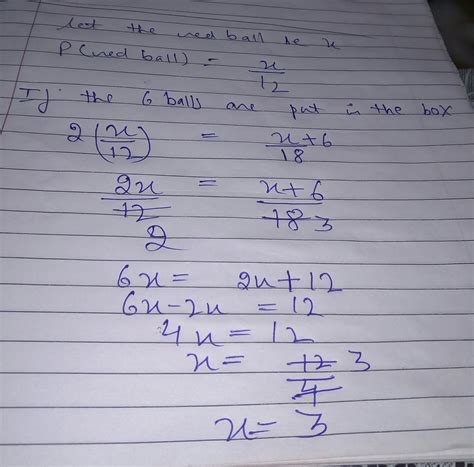 let the red ball be x
P(red ball) = x/12
If the 6 balls are put in the box
2(x/12) = x+6/18
2x/12 2 = x+6/18 3
6x = 2x+12
6x-2x = 12
4x = 12
x = 12/4 3
x = 3